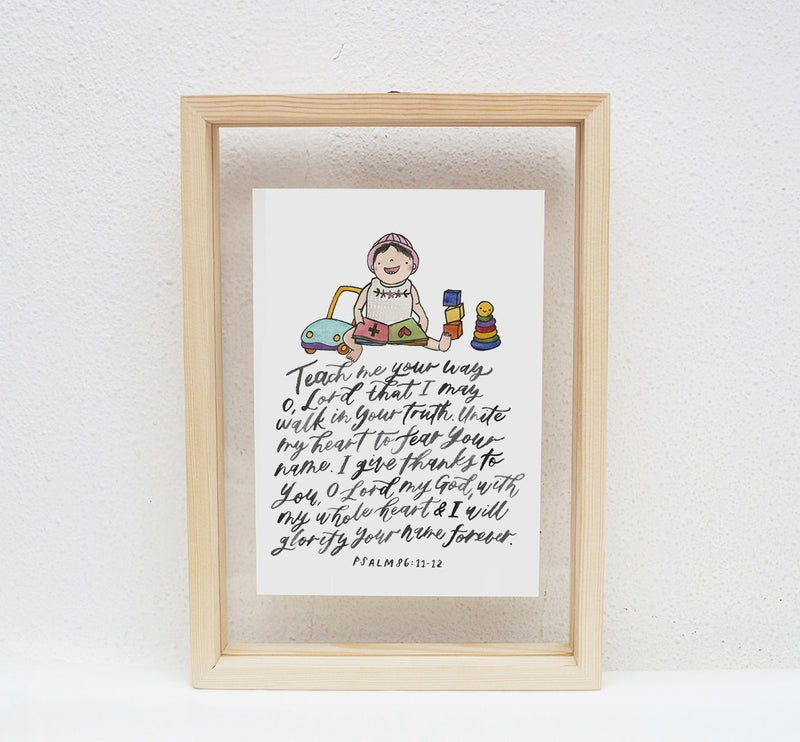 Teach me your way
O, Lord that I may
walk in Your truth. Unite
my heart to fear Your
name. I give thanks to
You, O Lord my God, with
my whole heart & I will
glorify Your name forever.
PSALM 86:11-12